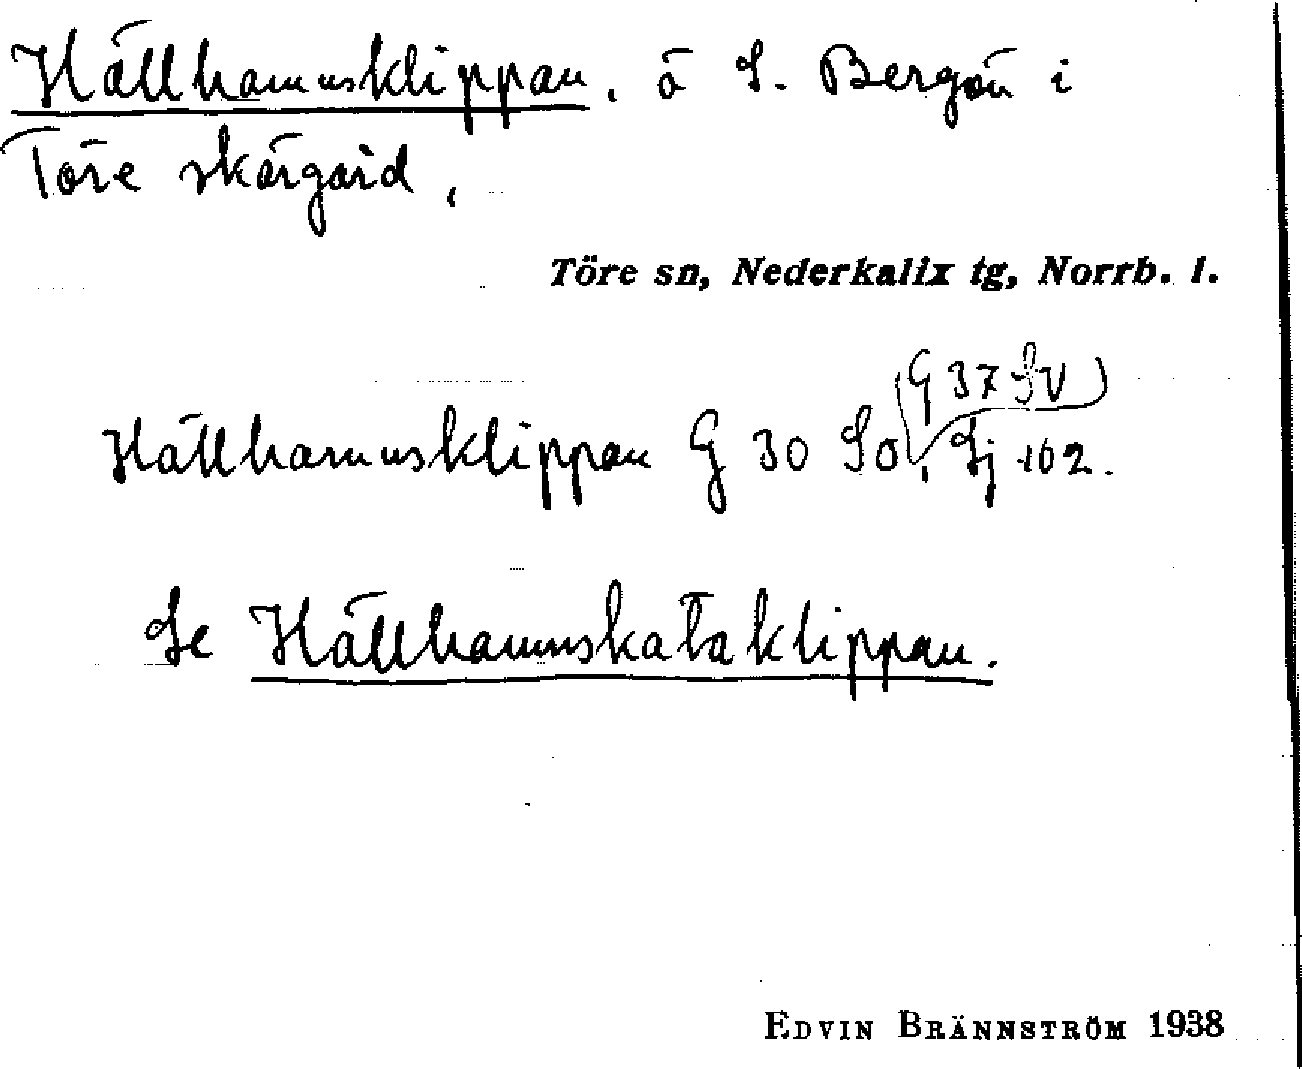 Hällhamnsklippan, å S. Bergön i
Töre skärgård,
Töre sn, Nederkalix tg, Norrb. l.
(G 37 SV)
Hällhamnsklippan G 30 SO, Sj 102.
Se Hällhamnskataklippan.
EDVIN BRÄNNSTRÖM 1938